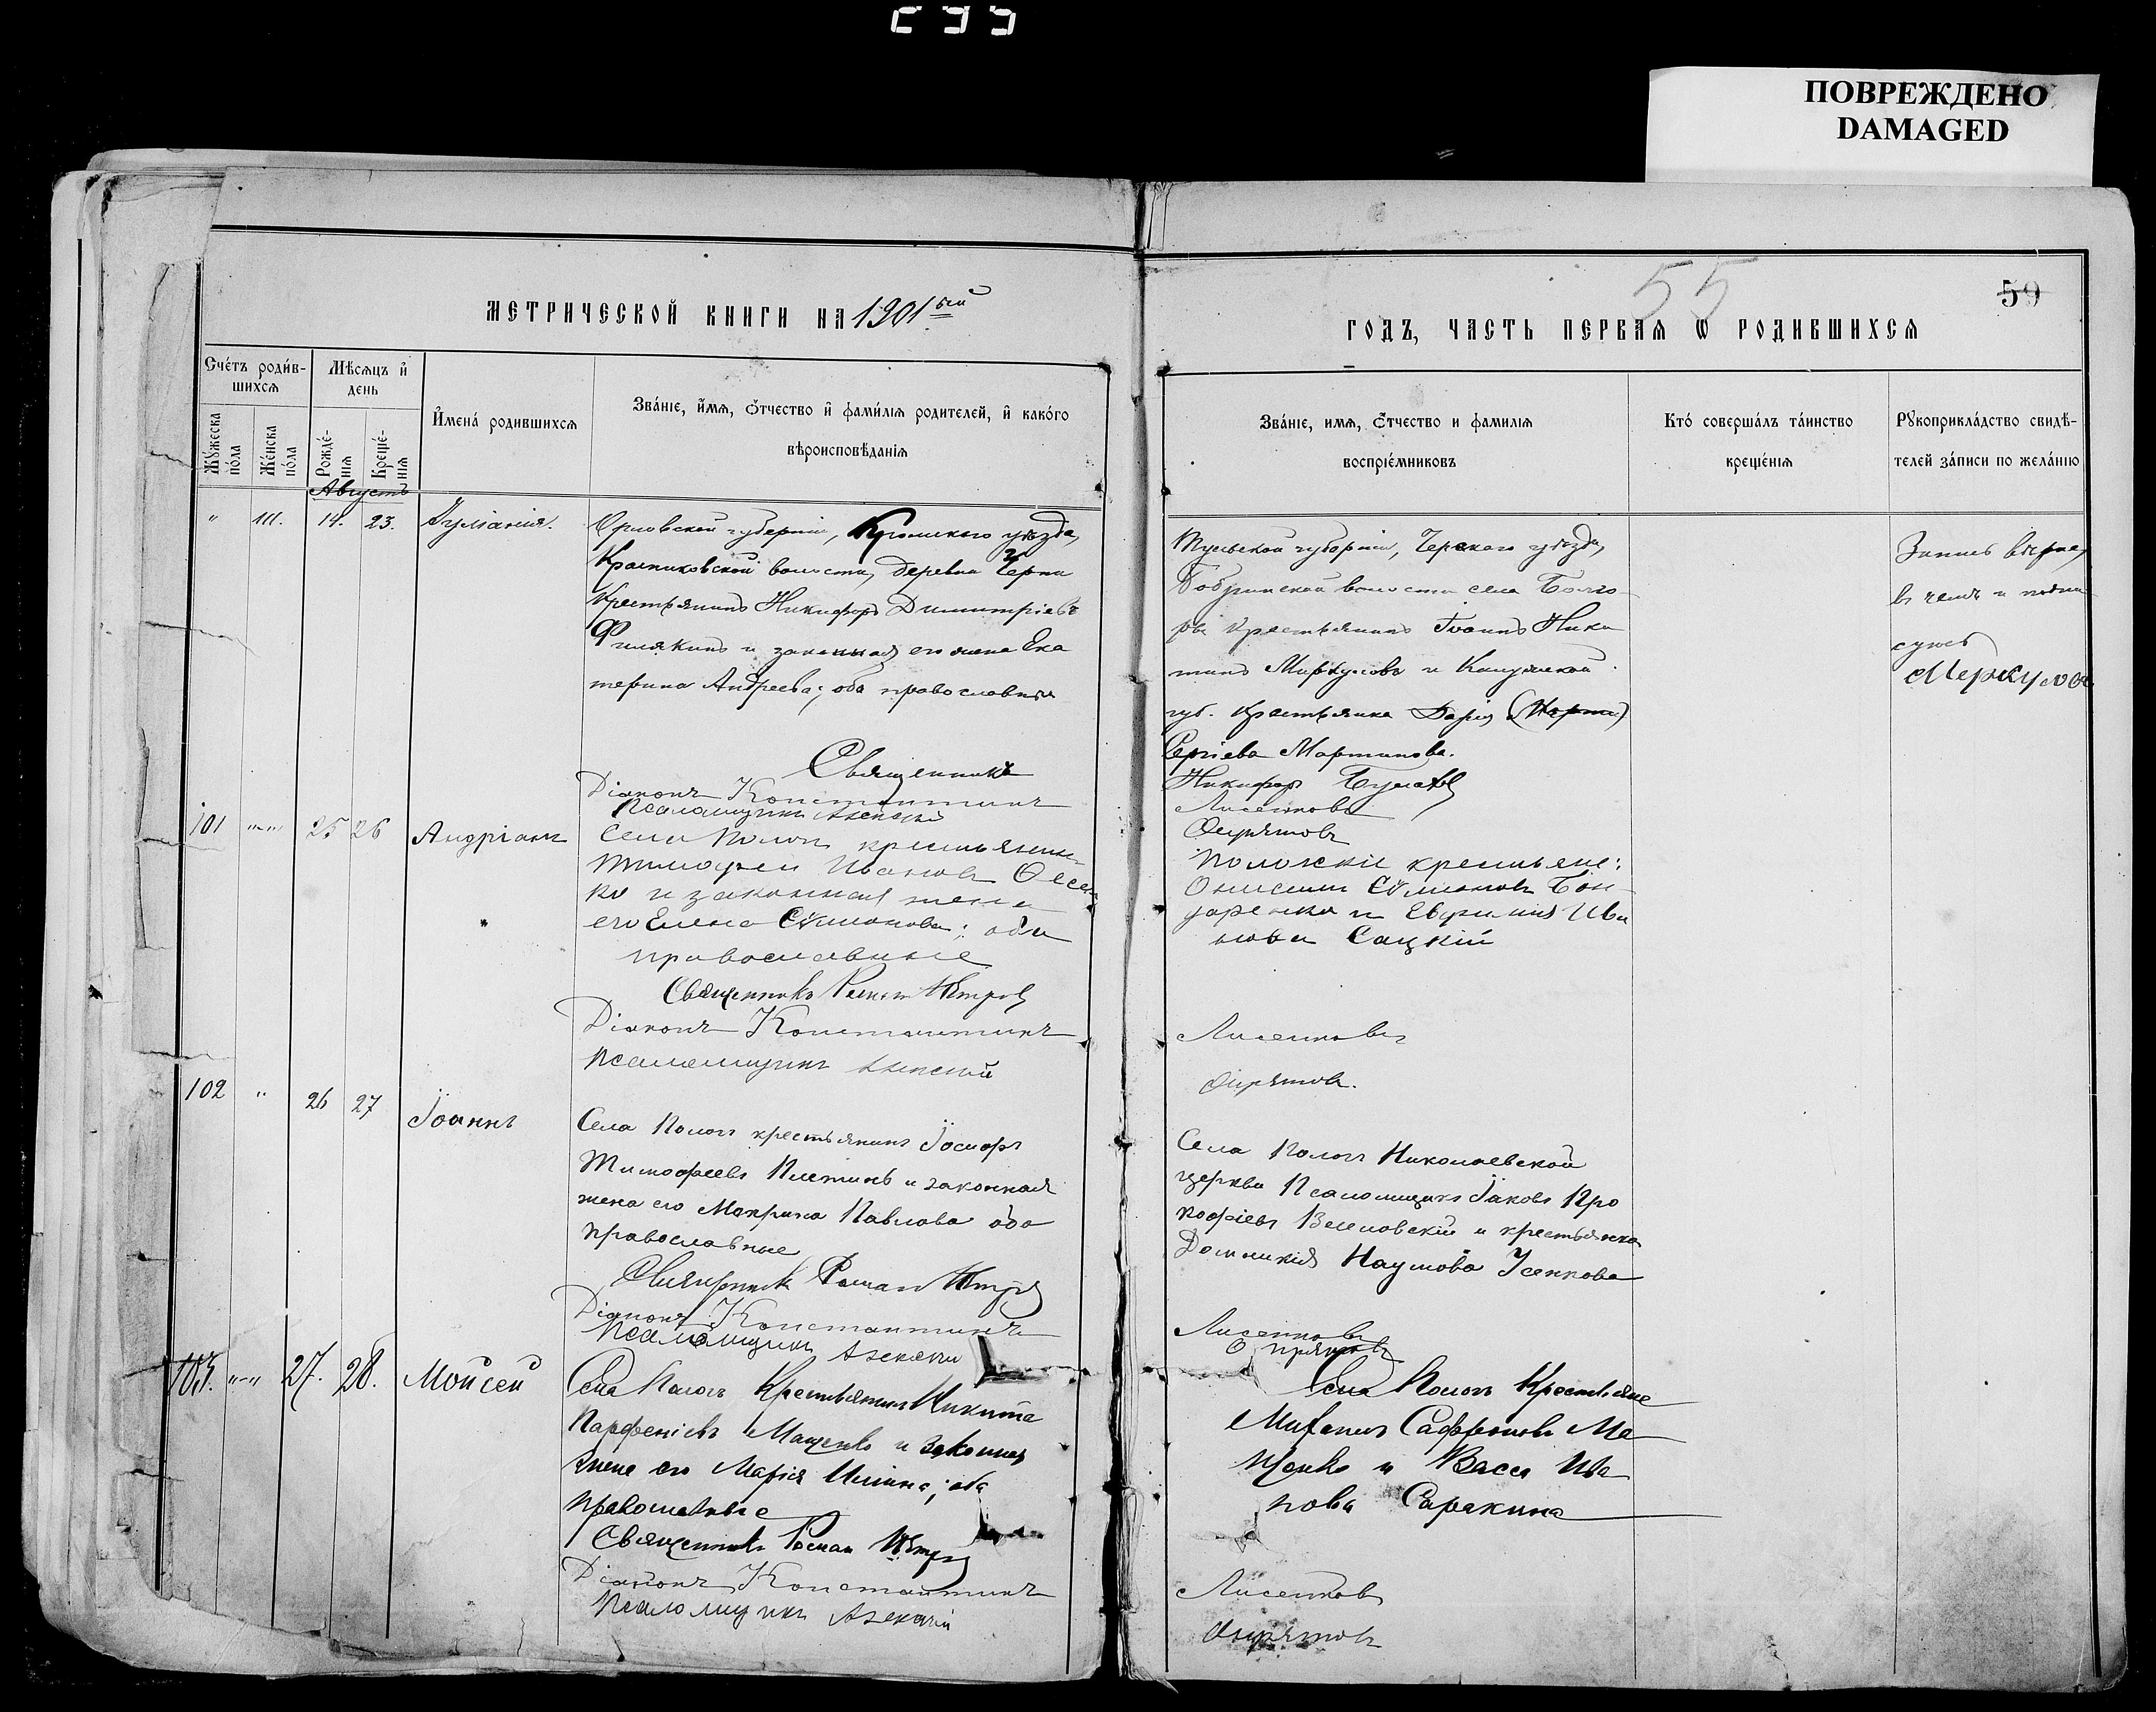 ПОВРЕЖДЕНО
DAMAGED
55
59
МЕТРИЧЕСКОЙ КНИГИ НА 1901ый
ГОДЪ, ЧАСТЬ ПЕРВАЯ Ѡ РОДИВШИХСЯ
Счетъ родив-
шихся
Мѣсяцъ и
день
Имена родившихся
Званіе, имя, отчество и фамилія родителей, и какого
вѣроисповѣданія
Мужеска
пола
Женска
пола
Рожде-
нія
Креще-
нія
Званіе, имя, отчество и фамилія
воспріемниковъ
Кто совершалъ таинство
крещенія
Рукоприкладство свидѣ-
телей записи по желанію
Августъ
" 111. 14. 23. Іуліанія.
Орловской губерніи, Кромскаго уѣзда,
волости, деревни Черни
крестьянинъ Никифоръ Димитріевъ
Филякинъ и законная его жена Ека
терина Андреева; оба православные
Священникъ
Діаконъ Константинъ
Псаломщикъ
Тульской губерніи, Чернскаго уѣзда,
Бобринской волости села
крестьянинъ Іоаннъ Ники
тинъ Меркуловъ и Калужской
губ. крестьянка Дарія
Сергіева Мартинова.
Никифоръ
Лисенковъ
Опрятовъ
Запись вѣрна,
въ чемъ и подпи
суюсь
Меркулов
101 "-" 25 26 Андріанъ
Села Пологъ крестьянинъ
Тимофей Ивановъ
ко и законная жена
его Елена Сѵмеонова; оба
православные
Священникъ Роман Петров
Діаконъ Константинъ
Псаломщикъ
Положскіе крестьяне:
Онисимъ Сѵмеоновъ Бон-
даренко и Евфимія Ива
нова Сацкій
Лисенковъ
Опрятовъ.
102 " 26 27 Іоаннъ
Села Пологъ крестьянинъ Іосифъ
Тимофеевъ Плетинь и законная
жена его Макрина Павлова оба
православные
Священник Роман Петров
Діаконъ Константинъ
Псаломщикъ
Села Пологъ Николаевской
церкви Псаломщикъ Іаковъ Про
кофіевъ Веселовскій и крестьянка
Домникія Наумова Усенкова
Лисенковъ
Опрятовъ
103. "-" 27. 28. Мойсей
Села Пологъ Крестьянинъ Никита
Парфеніевъ Мащенко и законная
жена его Марія Ильина; оба
православные
Священникъ Роман Петров
Діаконъ Константинъ
Псаломщикъ
Села Пологъ Крестьяне
Михаилъ Саффроновъ Ма
щенко и Васса Ива
нова Саракина
Лисенковъ
Опрятовъ